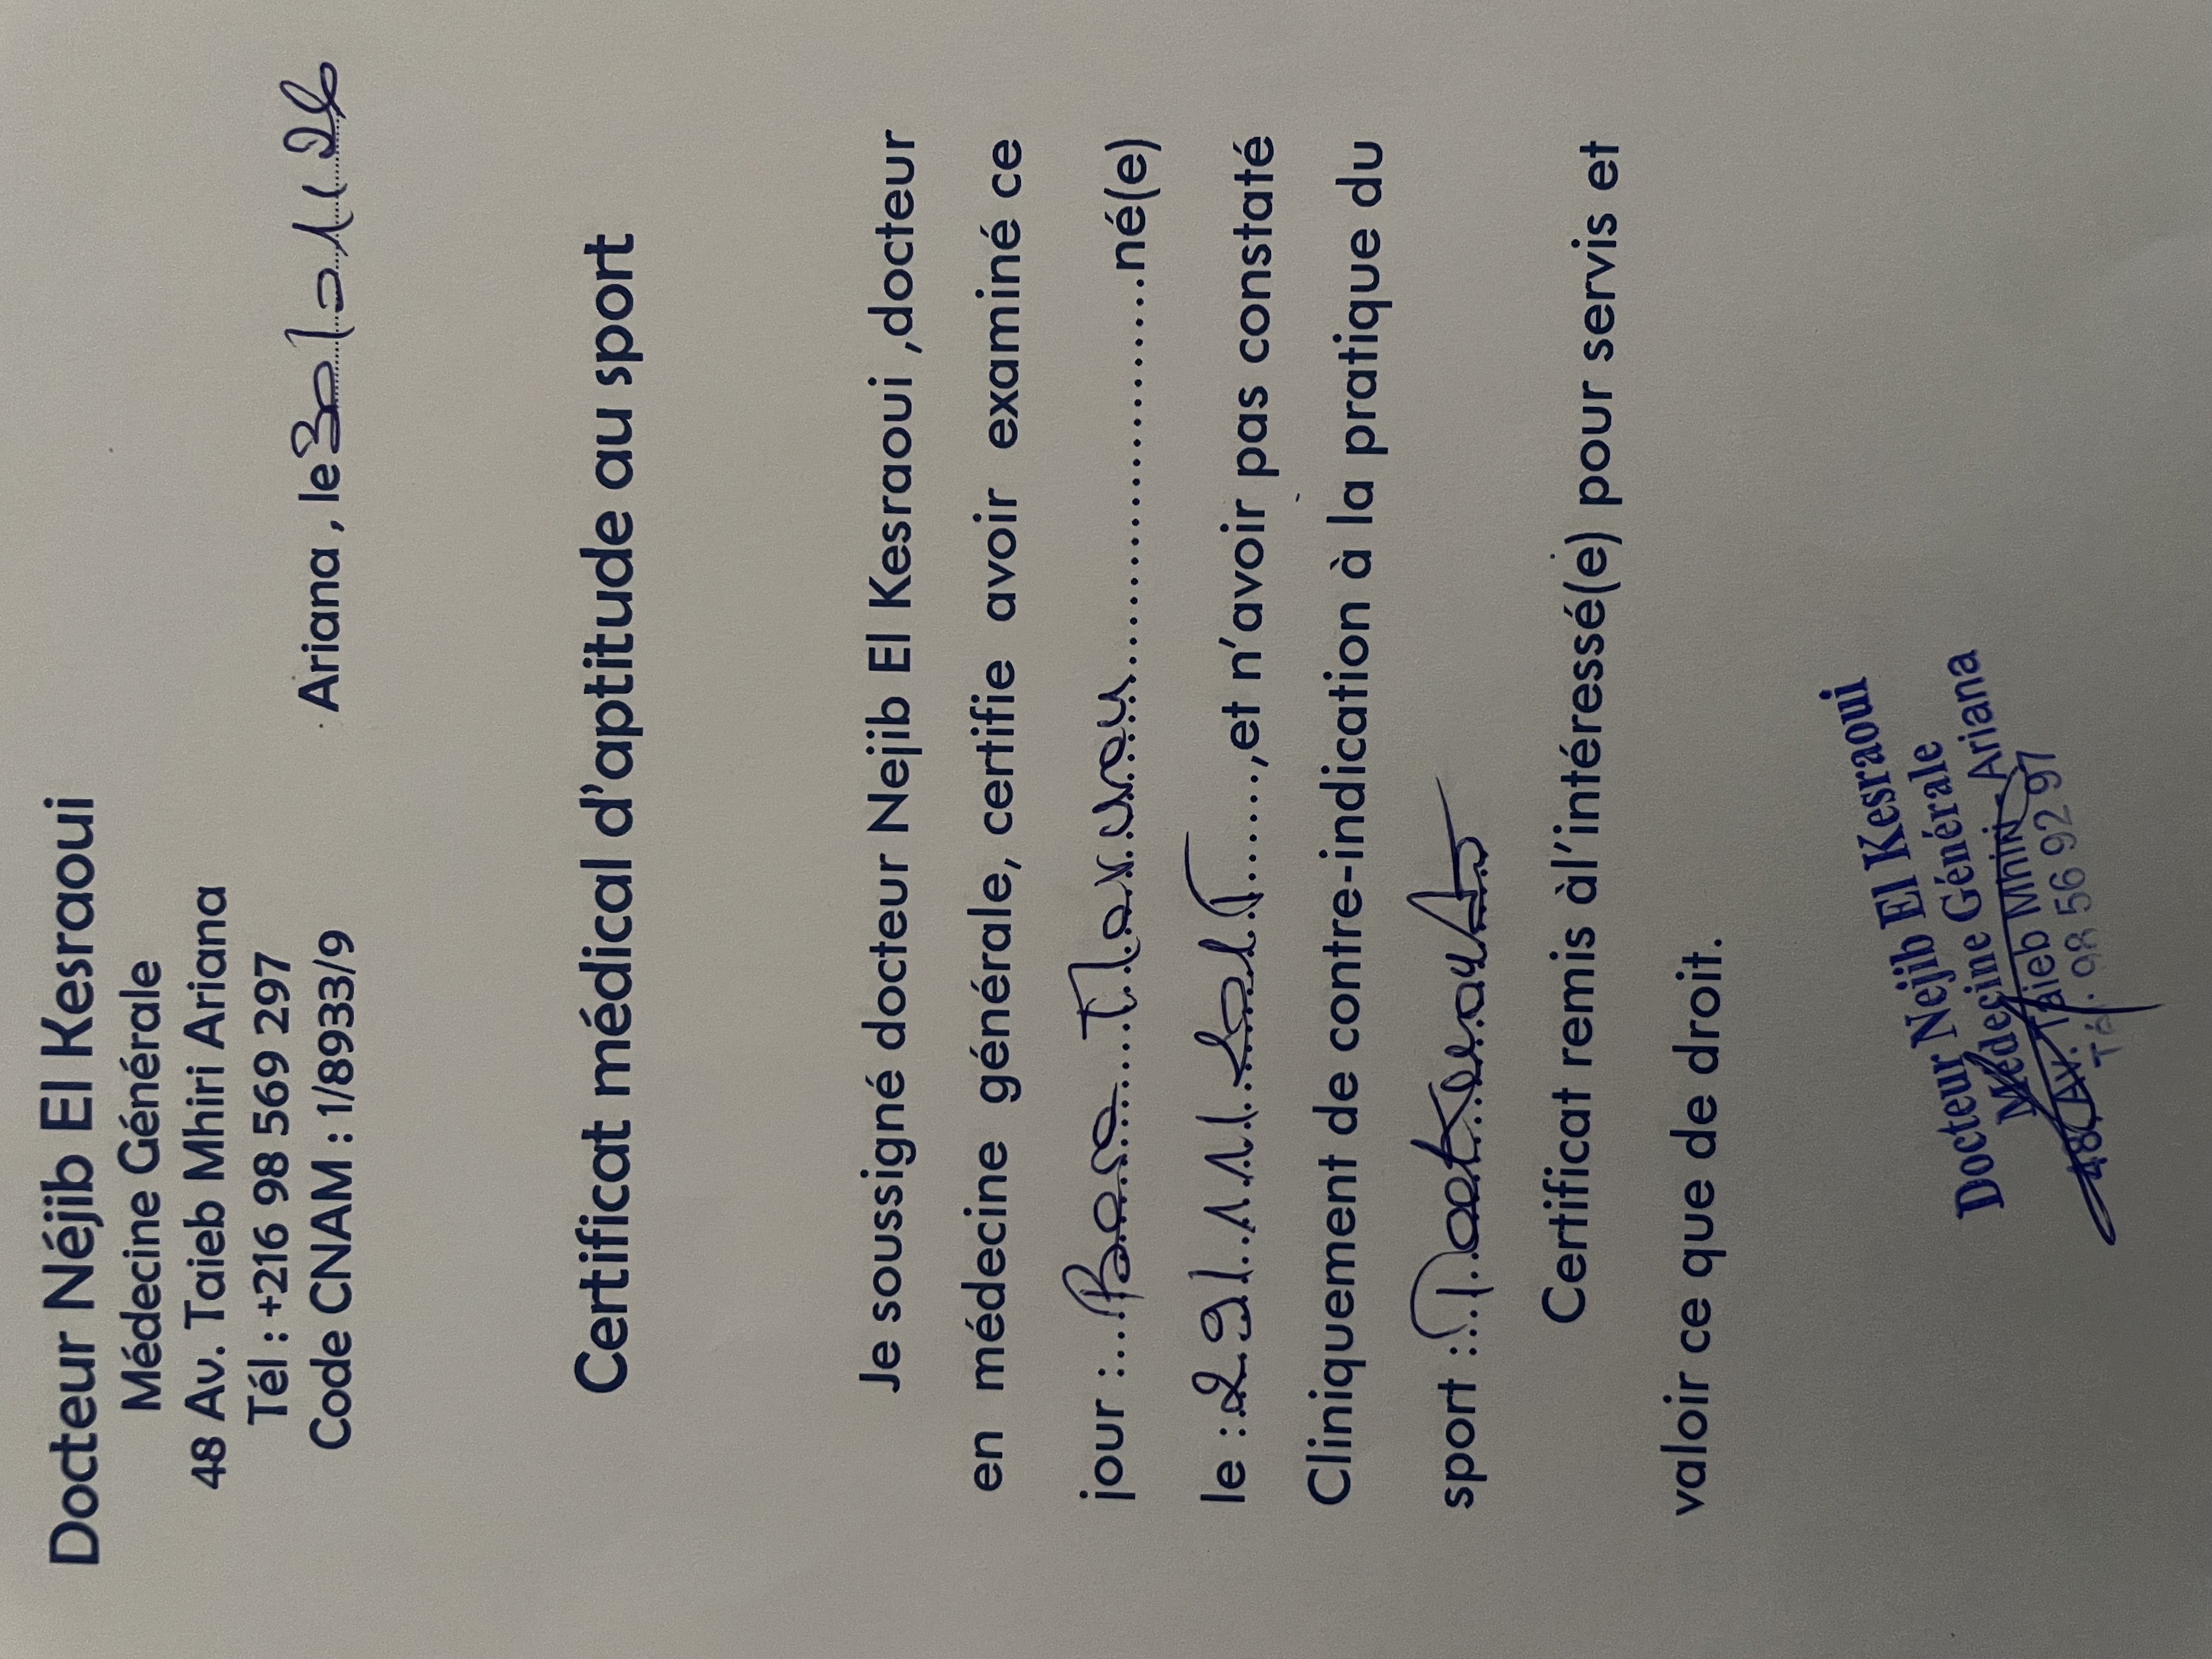 Docteur Néjib El Kesraoui
Médecine Générale
48 Av. Taieb Mhiri Ariana
Tél : +216 98 569 297
Code CNAM : 1/8933/9
Ariana , le 30/01/26
Certificat médical d'aptitude au sport
Je soussigné docteur Nejib El Kesraoui ,docteur
en médecine générale, certifie avoir examiné ce
jour : né(e)
le : 29/11/ ,et n'avoir pas constaté
Cliniquement de contre-indication à la pratique du
sport :
Certificat remis àl'intéressé(e) pour servis et
valoir ce que de droit.
Docteur Nejib El Kesraoui
Médecine Générale
48, Av. Taieb Mhiri - Ariana
Tél. 98 56 92 97